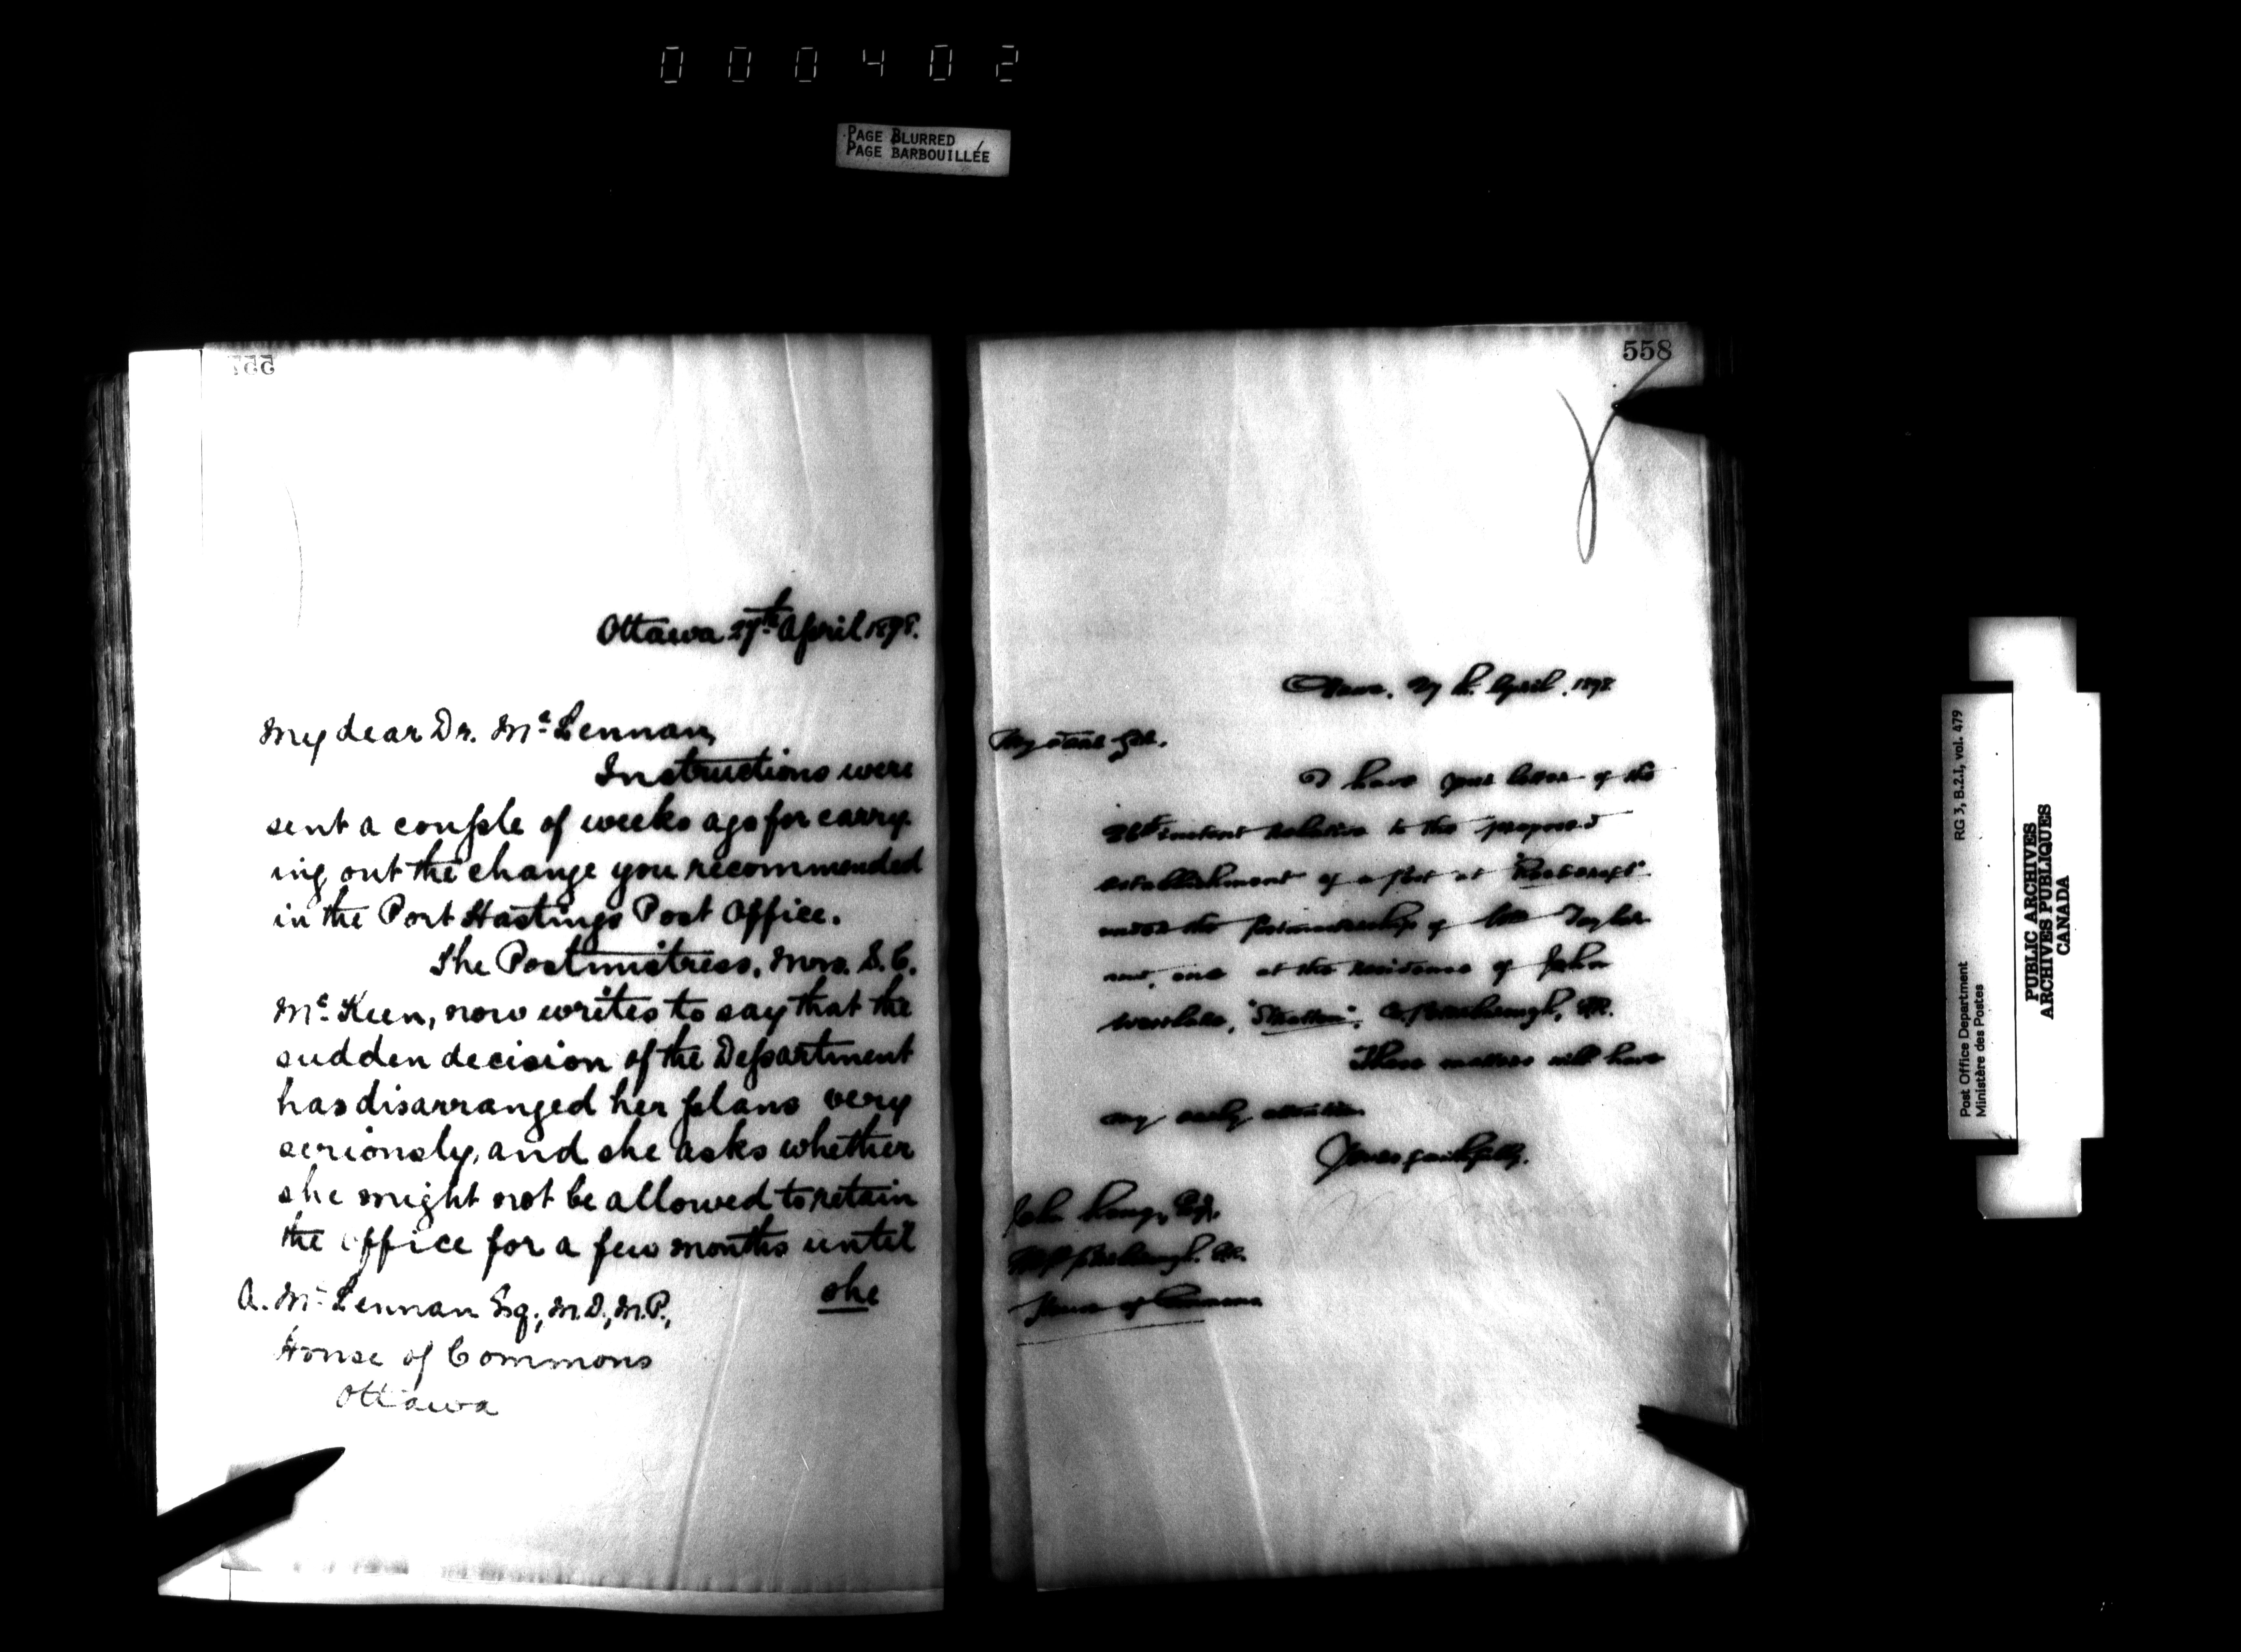 000402
PAGE BLURRED
PAGE BARBOUILLÉE
557
Ottawa 27th April 1898.
My dear Dr. Mc Lennan,
Instructions were
sent a couple of weeks ago for carry-
ing out the change you recommended
in the Port Hastings Post Office.
The Postmistress, Mrs. S. C.
Mc Keen, now writes to say that the
sudden decision of the Department
has disarranged her plans very
seriously, and she asks whether
she might not be allowed to retain
the office for a few months until
she
A. Mc Lennan Esq., M.D., M.P.,
House of Commons
Ottawa
558
Ottawa, 27th April, 1898
My dear Sir,
I have your letter of the
26th instant relative to the proposed
establishment of a post at
under the postmastership of Taylor
and, one at the residence of John
Westlake, "Stratton", Co. Peterborough,
These matters will have
my early attention
Yours faithfully,
John Lang, Esq.,
M.P. Peterborough,
House of Commons
Post Office Department
Ministère des Postes
RG 3, B.2.I, vol. 479
PUBLIC ARCHIVES
ARCHIVES PUBLIQUES
CANADA